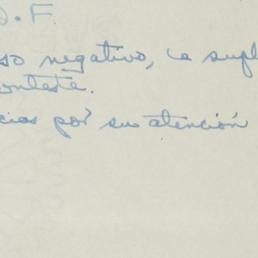 D.F.
so negativo, la supl
onteste.
cias por su atención